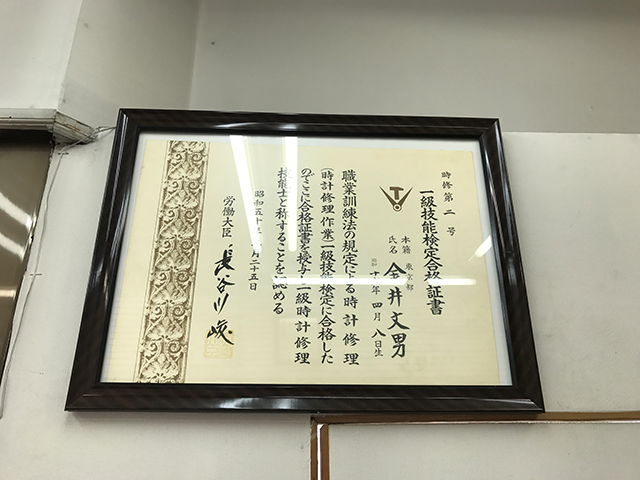 時修第二号
一級技能検定合格証書
本籍 東京都
氏名 金井文男
昭和 十年四月八日生
職業訓練法の規定による時計修理
(時計修理作業)一級技能検定に合格した
のでここに合格証書を授与し一級時計修理
技能士と称することを認める
昭和五十 月二十五日
労働大臣 長谷川峻